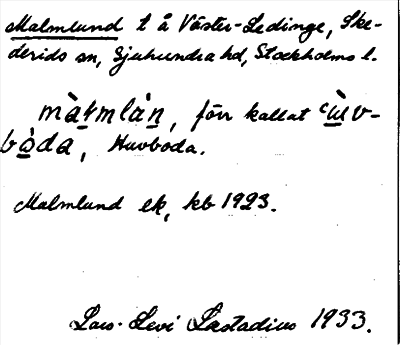 Malmlund t å Väster-Ledinge, Ske-
derids sn, Sjuhundra hd, Stockholms l.
màlmlàn, förr kallat
bòda, Huvboda.
Malmlund ek, kb 1923.
Lars-Levi Læstadius 1933.